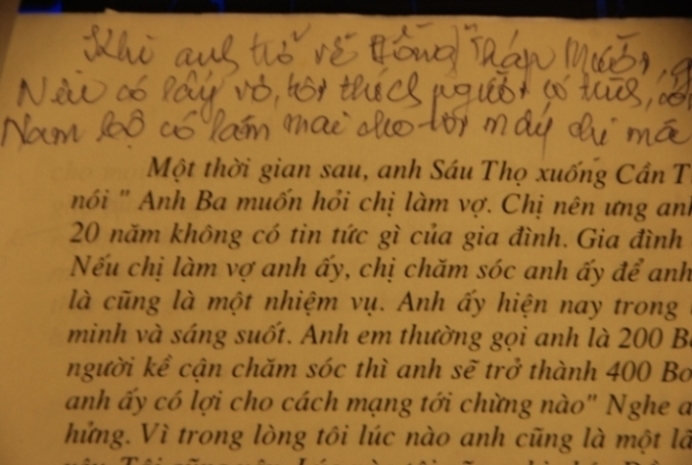 Khi anh trở về Đồng Tháp Mười,
Nếu có lấy vợ, tôi thích người có
Nam bộ có làm mai cho tôi mấy chị mà
Một thời gian sau, anh Sáu Thọ xuống Cần T
nói " Anh Ba muốn hỏi chị làm vợ. Chị nên ưng anh
20 năm không có tin tức gì của gia đình. Gia đình
Nếu chị làm vợ anh ấy, chị chăm sóc anh ấy để anh
là cũng là một nhiệm vụ. Anh ấy hiện nay trong
minh và sáng suốt. Anh em thường gọi anh là 200 B
người kề cận chăm sóc thì anh sẽ trở thành 400 Bo
anh ấy có lợi cho cách mạng tới chừng nào" Nghe a
hứng. Vì trong lòng tôi lúc nào anh cũng là một lã